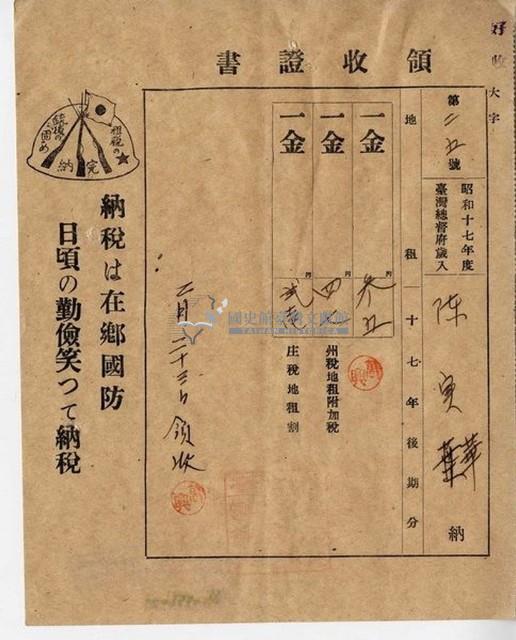 領收證書
好收
大字
第二五號
昭和十七年度
臺灣總督府歲入
陳寅華
納
地租
十七年後期分
一金
円
參五
一金
円
四
州稅地租附加稅
一金
円
庄稅地租割
二月二十三日領收
租税の
銃後の固め
完納
納税は在鄉國防
日頃の勤儉笑つて納税
國史館臺灣文獻館
TAIWAN HISTORICA